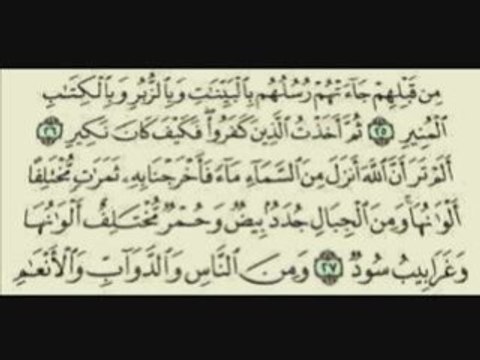 مِن قَبْلِهِمْ جَآءَتْهُمْ رُسُلُهُم بِٱلْبَيِّنَٰتِ وَبِٱلزُّبُرِ وَبِٱلْكِتَٰبِ
ٱلْمُنِيرِ ٢٥ ثُمَّ أَخَذْتُ ٱلَّذِينَ كَفَرُوا۟ فَكَيْفَ كَانَ نَكِيرِ ٢٦
أَلَمْ تَرَ أَنَّ ٱللَّهَ أَنزَلَ مِنَ ٱلسَّمَآءِ مَآءً فَأَخْرَجْنَا بِهِۦ ثَمَرَٰتٍ مُّخْتَلِفًا
أَلْوَٰنُهَا وَمِنَ ٱلْجِبَالِ جُدَدٌۢ بِيضٌ وَحُمْرٌ مُّخْتَلِفٌ أَلْوَٰنُهَا
وَغَرَابِيبُ سُودٌ ٢٧ وَمِنَ ٱلنَّاسِ وَٱلدَّوَآبِّ وَٱلْأَنْعَٰمِ